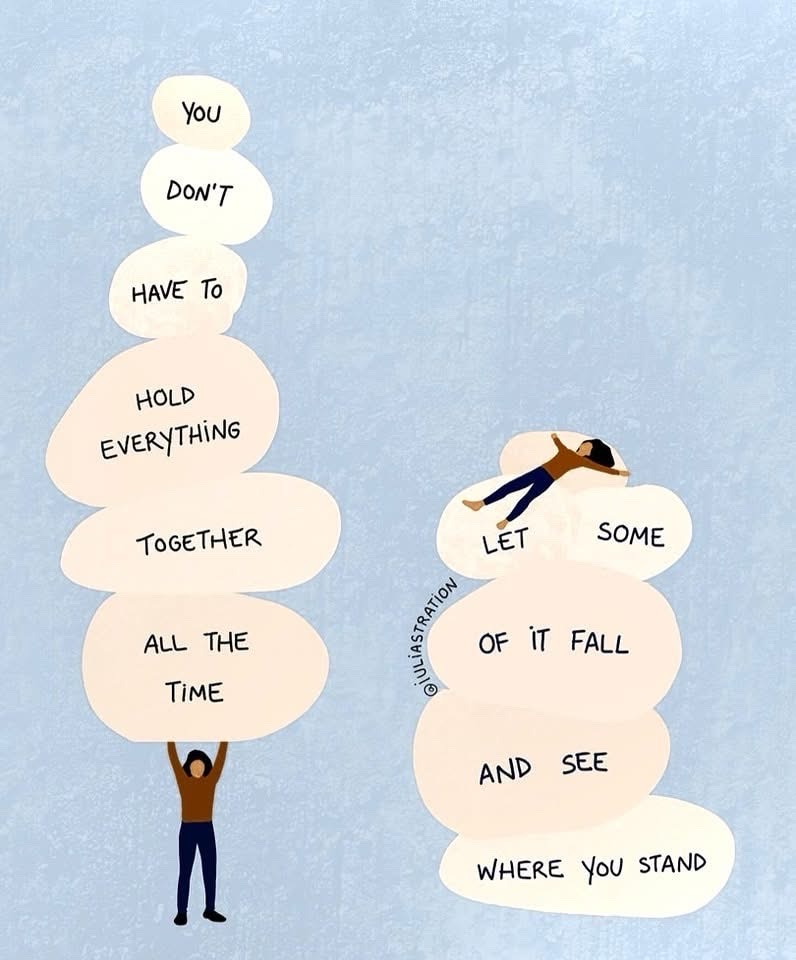 YOU
DON'T
HAVE TO
HOLD
EVERYTHING
TOGETHER
ALL THE
TIME
LET SOME
OF IT FALL
AND SEE
WHERE YOU STAND
@IULIASTRATION